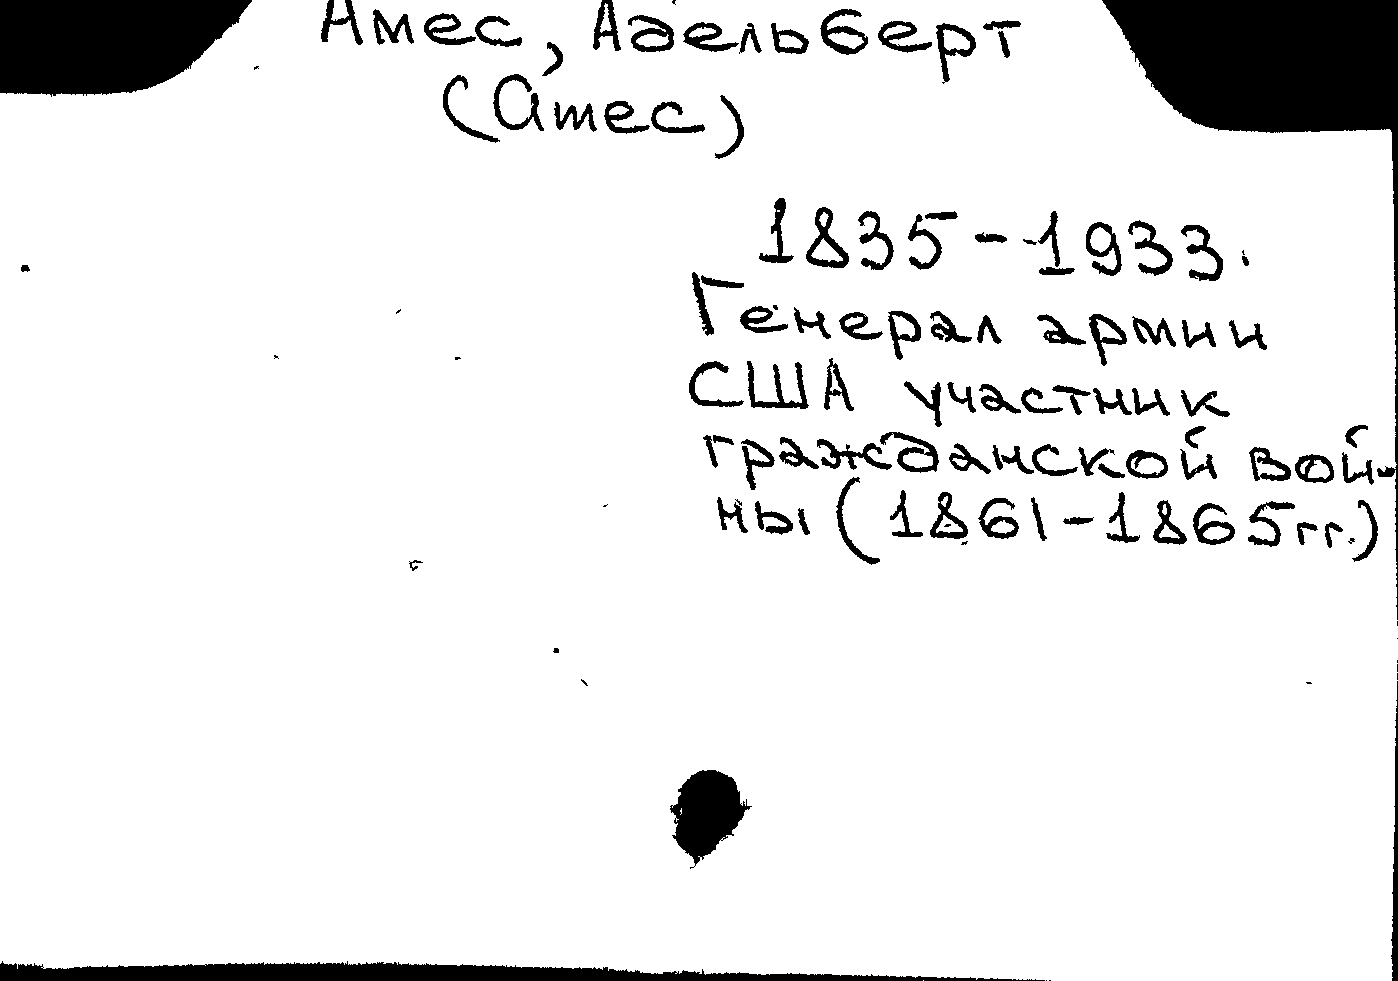 Амес, Адельберт
(Ames)
1835-1933.
Генерал армии
США участник
гражданской вой-
ны (1861-1865гг.)